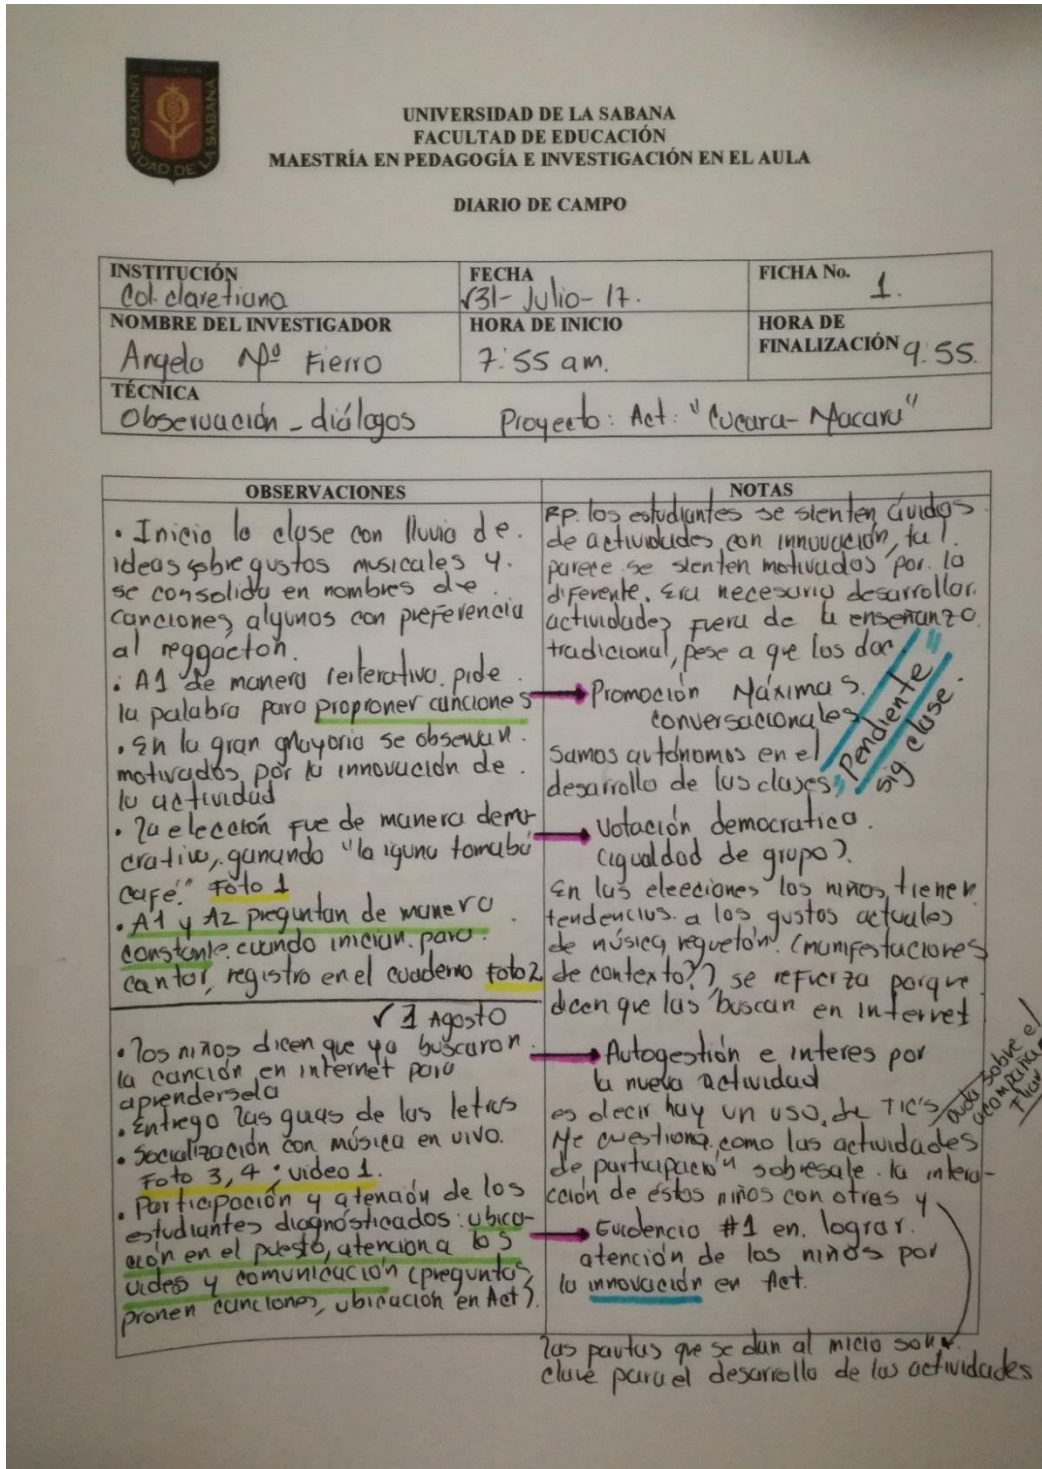 UNIVERSIDAD DE LA SABANA
UNIVERSIDAD DE LA SABANA
FACULTAD DE EDUCACIÓN
MAESTRÍA EN PEDAGOGÍA E INVESTIGACIÓN EN EL AULA
DIARIO DE CAMPO
INSTITUCIÓN
Col. claretiano
FECHA
√31- Julio- 17.
FICHA No.
1.
NOMBRE DEL INVESTIGADOR
Angelo Mª Fierro
HORA DE INICIO
7:55 am.
HORA DE
FINALIZACIÓN 9:55.
TÉCNICA
Observación - diálogos Proyecto: Act: "Cucara- Macara"
OBSERVACIONES
• Inicio la clase con lluvia de.
ideas sobre gustos musicales y.
se consolida en nombres de.
canciones, algunos con preferencia
al reggaeton.
• A1 de manera reiterativa. pide.
la palabra para proproner canciones
• En la gran mayoria se observan.
motivados, por la innovación de.
la actividad
• La elección fue de manera demo-
crativa, ganando "la iguna tomaba
café." Foto 1
• A1 y A2 preguntan de manera.
constante. cuando inician. para.
cantar, registro en el cuaderno Foto 2
√ 1 Agosto
• los niños dicen que ya buscaron.
la canción en internet para
aprendersela
• Entrego las guas de las letras
• Socialización con música en vivo.
Foto 3, 4; video 1.
• Participación y atención de los
estudiantes diagnósticados: ubica-
ción en el puesto, atencion a los
videos y comunicación (preguntas,
pronen canciones, ubicacion en Act).
NOTAS
RP. los estudiantes se sienten ávidos.
de actividades con innovación, tal.
parece se sienten motivados por. lo
diferente. Era necesario desarrollar.
actividades fuera de la enseñanza.
tradicional, pese a que los doc.
Promoción Máximas.
conversacionales
Samos autónomos en el
desarrollo de las clases
"Pendiente"
sig clase.
Votación democratica.
(igualdad de grupo).
En las elecciones los niños, tienen
tendencias. a los gustos actuales
de música, reguetón. (manifestaciones
de contexto??) se refuerza porque.
dicen que las buscan en internet
Autogestión e interes por
la nueva actividad
es decir hay un uso. de TIC's
duda sobre el
Me cuestiona. como las actividades
de participación sobresale. la intera-
cción de éstos niños con otras y
Evidencia #1 en. lograr.
atención de los niños por
la innovación en Act.
las pautas que se dan al inicio son.
clave para el desarrollo de las actividades